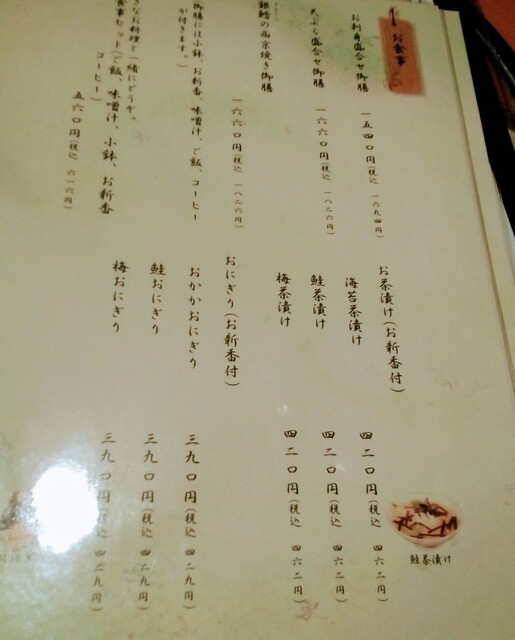 お食事
お刺身盛合せ御膳 一五四〇円(税込 一六九四円)
天ぷら盛合せ御膳 一六六〇円(税込 一八二六円)
銀鱈の西京焼き御膳 一六六〇円(税込 一八二六円)
御膳には小鉢、お新香、味噌汁、ご飯、コーヒー
が付きます。)
きなお料理と一緒にどうぞ。
食事セット(ご飯、味噌汁、小鉢、お新香
コーヒー) 五六〇円(税込 六一六円)
お茶漬け(お新香付)
海苔茶漬け 四二〇円(税込 四六二円)
鮭茶漬け 四二〇円(税込 四六二円)
梅茶漬け 四二〇円(税込 四六二円)
おにぎり(お新香付)
おかかおにぎり 三九〇円(税込 四二九円)
鮭おにぎり 三九〇円(税込 四二九円)
梅おにぎり 三九〇円(税込 四二九円)
鮭茶漬け